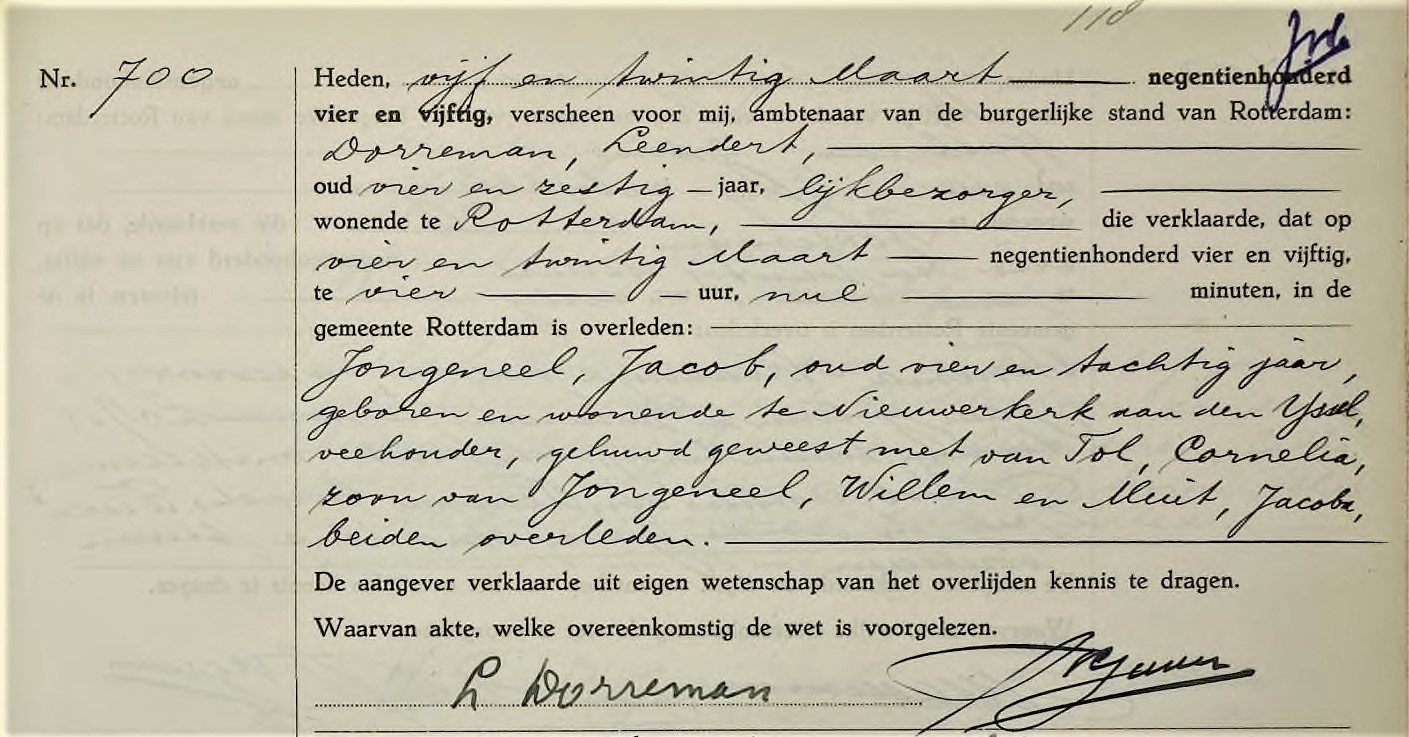 118
Nr. 700
Heden, vijf en twintig Maart negentienhonderd
vier en vijftig, verscheen voor mij, ambtenaar van de burgerlijke stand van Rotterdam:
Dorreman, Leendert,
oud vier en zestig jaar, lijkbezorger,
wonende te Rotterdam, die verklaarde, dat op
vier en twintig Maart negentienhonderd vier en vijftig,
te vier uur, nul minuten, in de
gemeente Rotterdam is overleden:
Jongeneel, Jacob, oud vier en tachtig jaar,
geboren en wonende te Nieuwerkerk aan den Yssel,
veehouder, gehuwd geweest met van Tol, Cornelia,
zoon van Jongeneel, Willem en Muit, Jacoba,
beiden overleden.
De aangever verklaarde uit eigen wetenschap van het overlijden kennis te dragen.
Waarvan akte, welke overeenkomstig de wet is voorgelezen.
L Dorreman